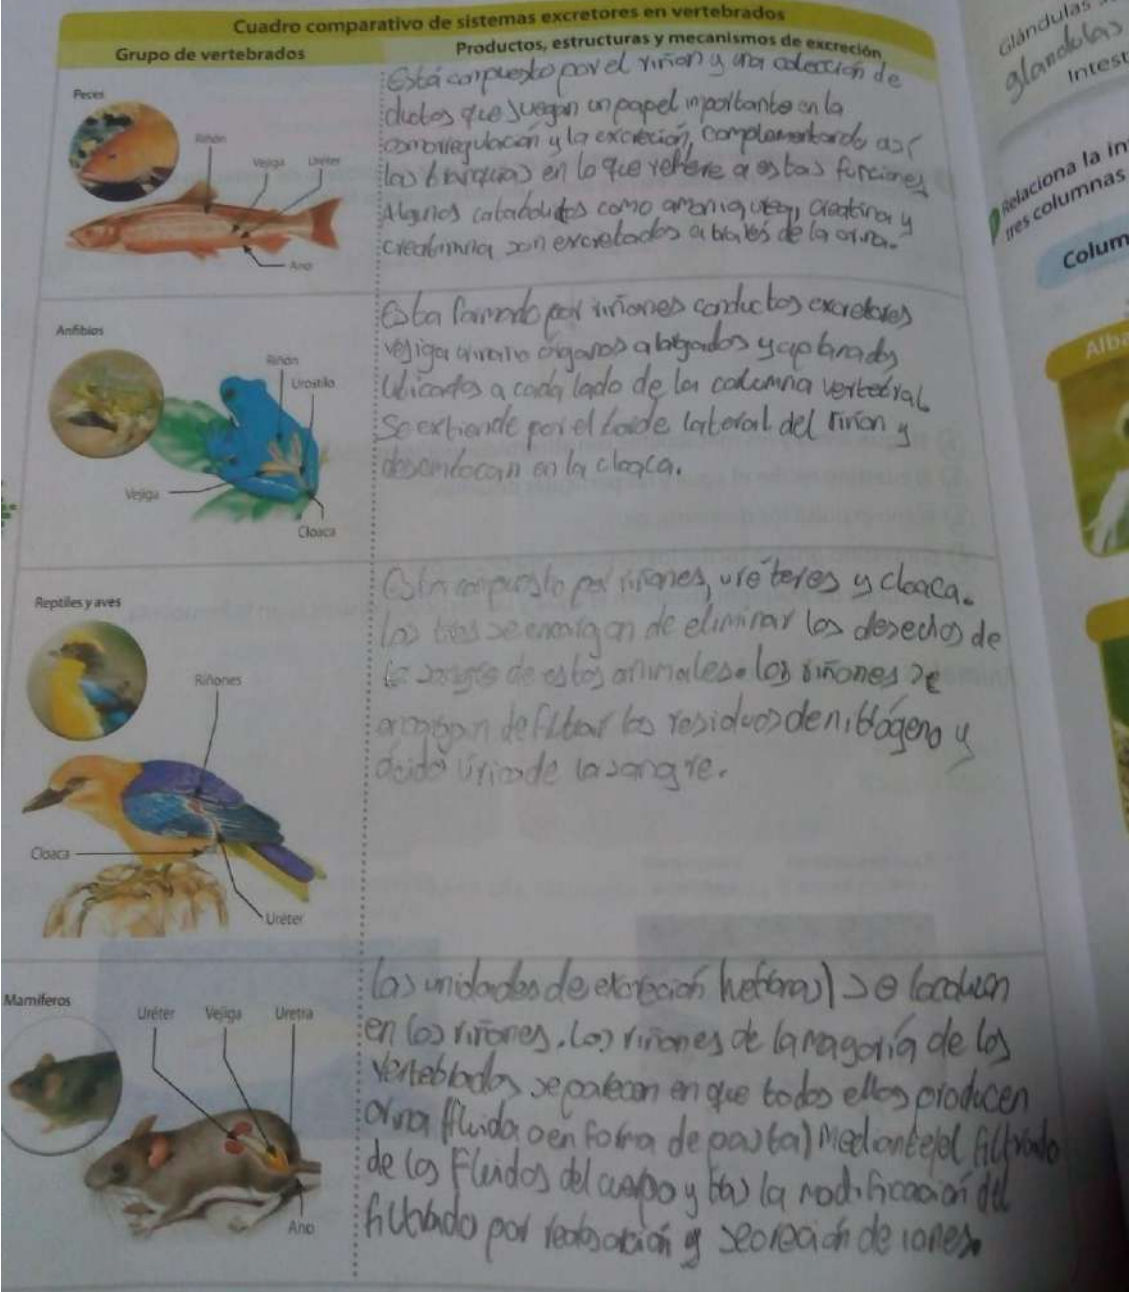 Cuadro comparativo de sistemas excretores en vertebrados
Grupo de vertebrados
Productos, estructuras y mecanismos de excreción
Peces
Riñón
Vejiga
Uréter
Ano
Está compuesto por el riñon y una colección de
ductos que juegan un papel importante en la
y la excreción, complementando así
las branquias en lo que refiere a estas funciones
Algunos catabolitos como amoniaco, creatina y
creatinina son excretados a través de la orina.
Anfibios
Riñón
Urostilo
Vejiga
Cloaca
Esta formado por riñones conductos excretores
vejiga urinaria órganos alargados y
Ubicados a cada lado de la columna vertebral
Se extiende por el borde lateral del riñon y
desembocan en la cloaca.
Reptiles y aves
Riñones
Cloaca
Uréter
Esta compuesto por riñones, uréteres y cloaca.
los tres se encargan de eliminar los desechos de
la sangre de estos animales. los riñones se
encargan de filtrar los residuos de nitrógeno y
ácido úrico de la sangre.
Mamíferos
Uréter
Vejiga
Uretra
Ano
Las unidades de excreción se localizan
en los riñones. Los riñones de la mayoría de los
vertebrados se parecen en que todos ellos producen
orina fluida o en forma de pasta) Mediante el filtrado
de los fluidos del cuerpo y tras la modificación del
filtrado por reabsorción y secreción de iones.
Glándulas
glandulas
Intest
Relaciona la in
tres columnas
Colum
Alba